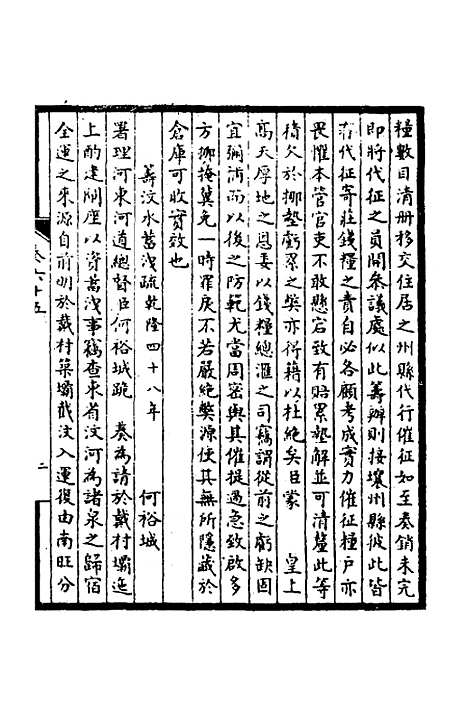 糧數目清册移交住居之州縣代行催征如至奏銷未完
即將代征之員開參議處似此籌辦則接壤州縣彼此皆
有代征寄莊錢糧之責自必各顧考成實力催征種户亦
畏懼本管官吏不敢懸宕致有賠累墊解並可清釐此等
積欠於挪墊虧累之獘亦得藉以杜絶矣日蒙　皇上
高天厚地之恩委以錢糧總滙之司竊謂從前之虧缺固
宜彌補而以後之防範尤當周密與其催提過急致啟多
方挪掩冀免一時罪戾不若嚴絶獘源使其無所隱藏於
倉庫可收實效也
籌汶水蓄洩疏乾隆四十八年　何裕城
署理河東河道總督臣何裕城跪　奏為請於戴村壩迤
上酌建閘座以資蓄洩事竊查東省汶河為諸泉之歸宿
全運之來源自前明於戴村築壩截汶入運復由南旺分
卷六十五
二